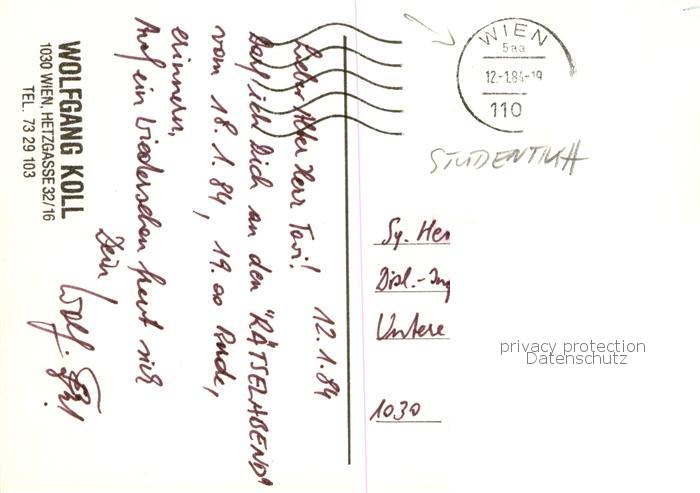 12.1.84
Lieber Alter Herr Tavi!
Darf ich Dich an den "RÄTSELABEND"
vom 18.1.84, 19.00 Bude,
erinnern,
Auf ein Wiedersehen freut sich
Dein
Wolf.
WOLFGANG KOLL
1030 WIEN, HETZGASSE 32/16
TEL. 73 29 103
WIEN
5aa
12.-1.84-19
110
Sg. Her
Dipl.-Ing
Untere
1030
privacy protection
Datenschutz